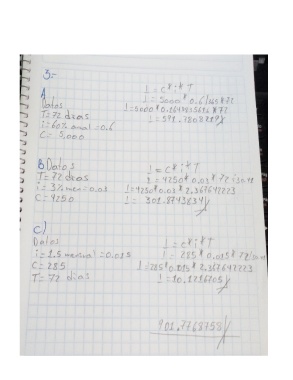 3:-
A
Datos
T=72 dias
i=60% anual=0.6
C= 5,000
I = C*i*T
I = 5000*0.6/365*72
I = 591.7808219
B Datos
T=72 dias
i=3% men=0.03
C=4250
I = C*i*T
I = 4250*0.03*72/30.41
I=4250*0.03*2.367642223
I = 301.8743834
C)
Datos
i=1.5 mensual=0.015
C=285
T=72 dias
I=C*i*T
I=285*0.015*72/30.41
I=285*0.015*2.367642223
I=10.1216705
901.7768758